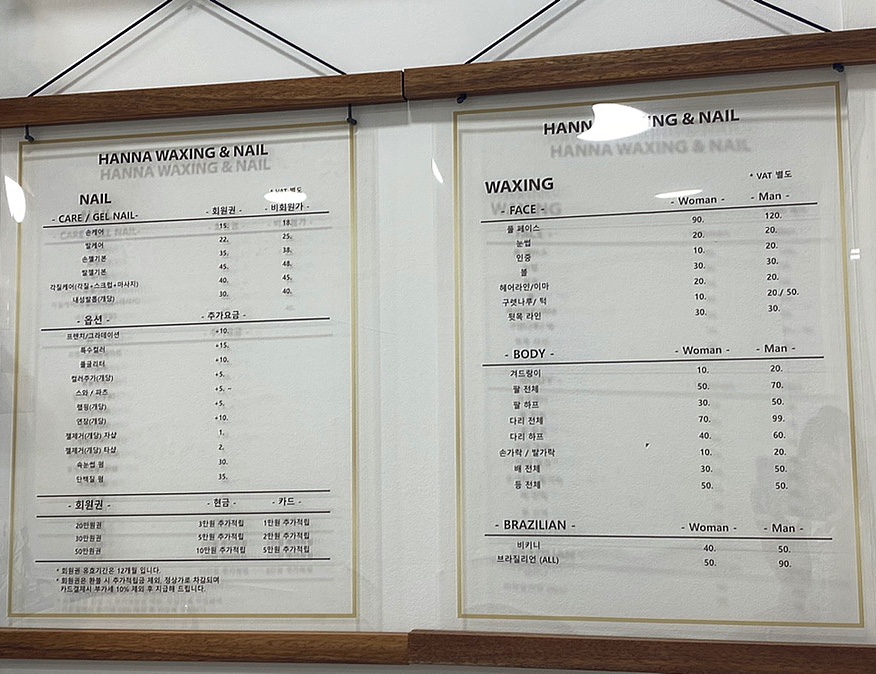 HANNA WAXING & NAIL
NAIL
* VAT 별도
- CARE / GEL NAIL- - 회원권 - - 비회원가 -
손케어 15. 18.
발케어 22. 25.
손젤기본 35. 38.
발젤기본 45. 48.
각질케어(각질+스크럽+마사지) 40. 45.
내성발톱(개당) 30. 40.
- 옵션 - - 추가요금 -
프렌치/그라데이션 +10.
특수컬러 +15.
풀글리터 +10.
컬러추가(개당) +5.
스와 / 파츠 +5. ~
랩핑(개당) +5.
연장(개당) +10.
젤제거(개당) 자샵 1.
젤제거(개당) 타샵 2.
속눈썹 펌 30.
단백질 펌 35.
- 회원권 - - 현금 - - 카드 -
20만원권 3만원 추가적립 1만원 추가적립
30만원권 5만원 추가적립 2만원 추가적립
50만원권 10만원 추가적립 5만원 추가적립
* 회원권 유효기간은 12개월 입니다.
* 회원권은 환불 시 추가적립금 제외, 정상가로 차감되며
카드결제시 부가세 10% 제외 후 지급해 드립니다.
HANNA WAXING & NAIL
WAXING
* VAT 별도
- FACE - - Woman - - Man -
풀 페이스 90. 120.
눈썹 20. 20.
인중 10. 20.
볼 30. 30.
헤어라인/이마 20. 20.
구렛나루/ 턱 10. 20./ 50.
뒷목 라인 30. 30.
- BODY - - Woman - - Man -
겨드랑이 10. 20.
팔 전체 50. 70.
팔 하프 30. 50.
다리 전체 70. 99.
다리 하프 40. 60.
손가락 / 발가락 10. 20.
배 전체 30. 50.
등 전체 50. 50.
- BRAZILIAN - - Woman - - Man -
비키니 40. 50.
브라질리언 (ALL) 50. 90.